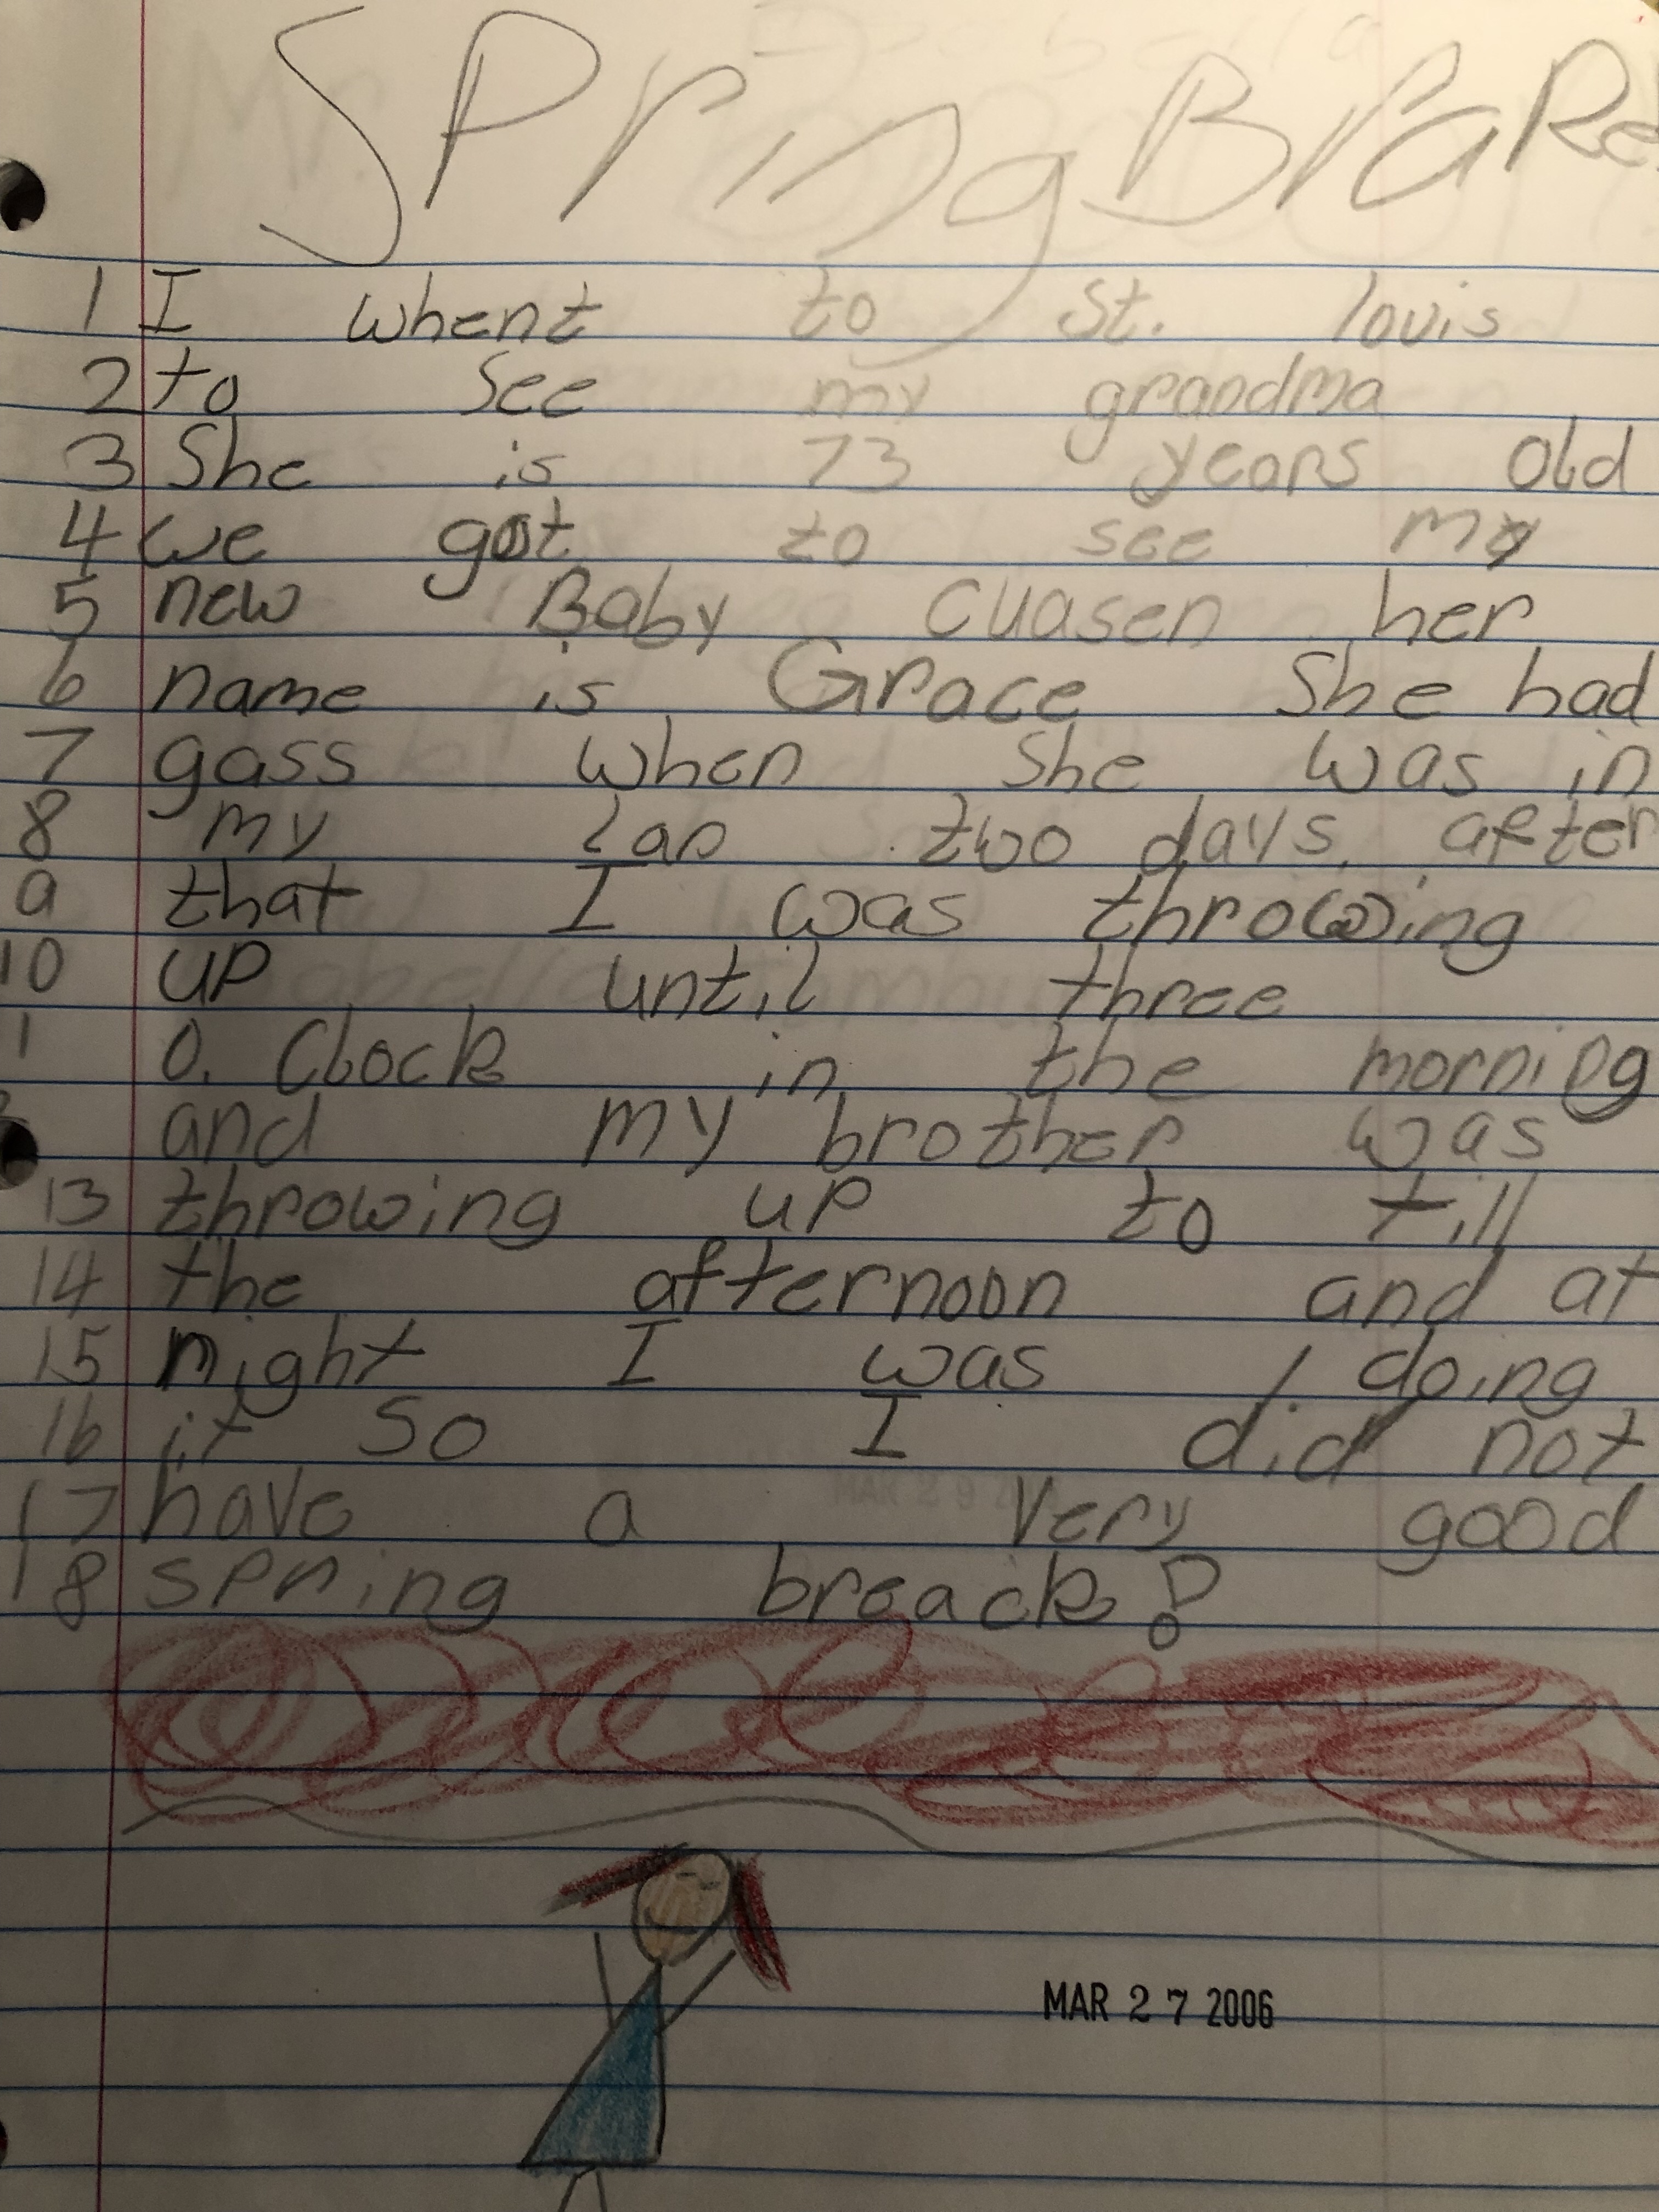 SPring BraKe
1 I whent to St. louis
2 to See my grandma
3 She is 73 years Old
4 we got to see my
5 new Baby cuasen her
6 name is Grace She had
7 gass when She was in
8 my lap two days after
9 that I was throwing
10 up until three
1 O. Clock in the morning
and my brother was
13 throwing up to till
14 the afternoon and at
15 night I was doing
16 it So I did not
17 have a Very good
18 spring breack!
MAR 27 2006